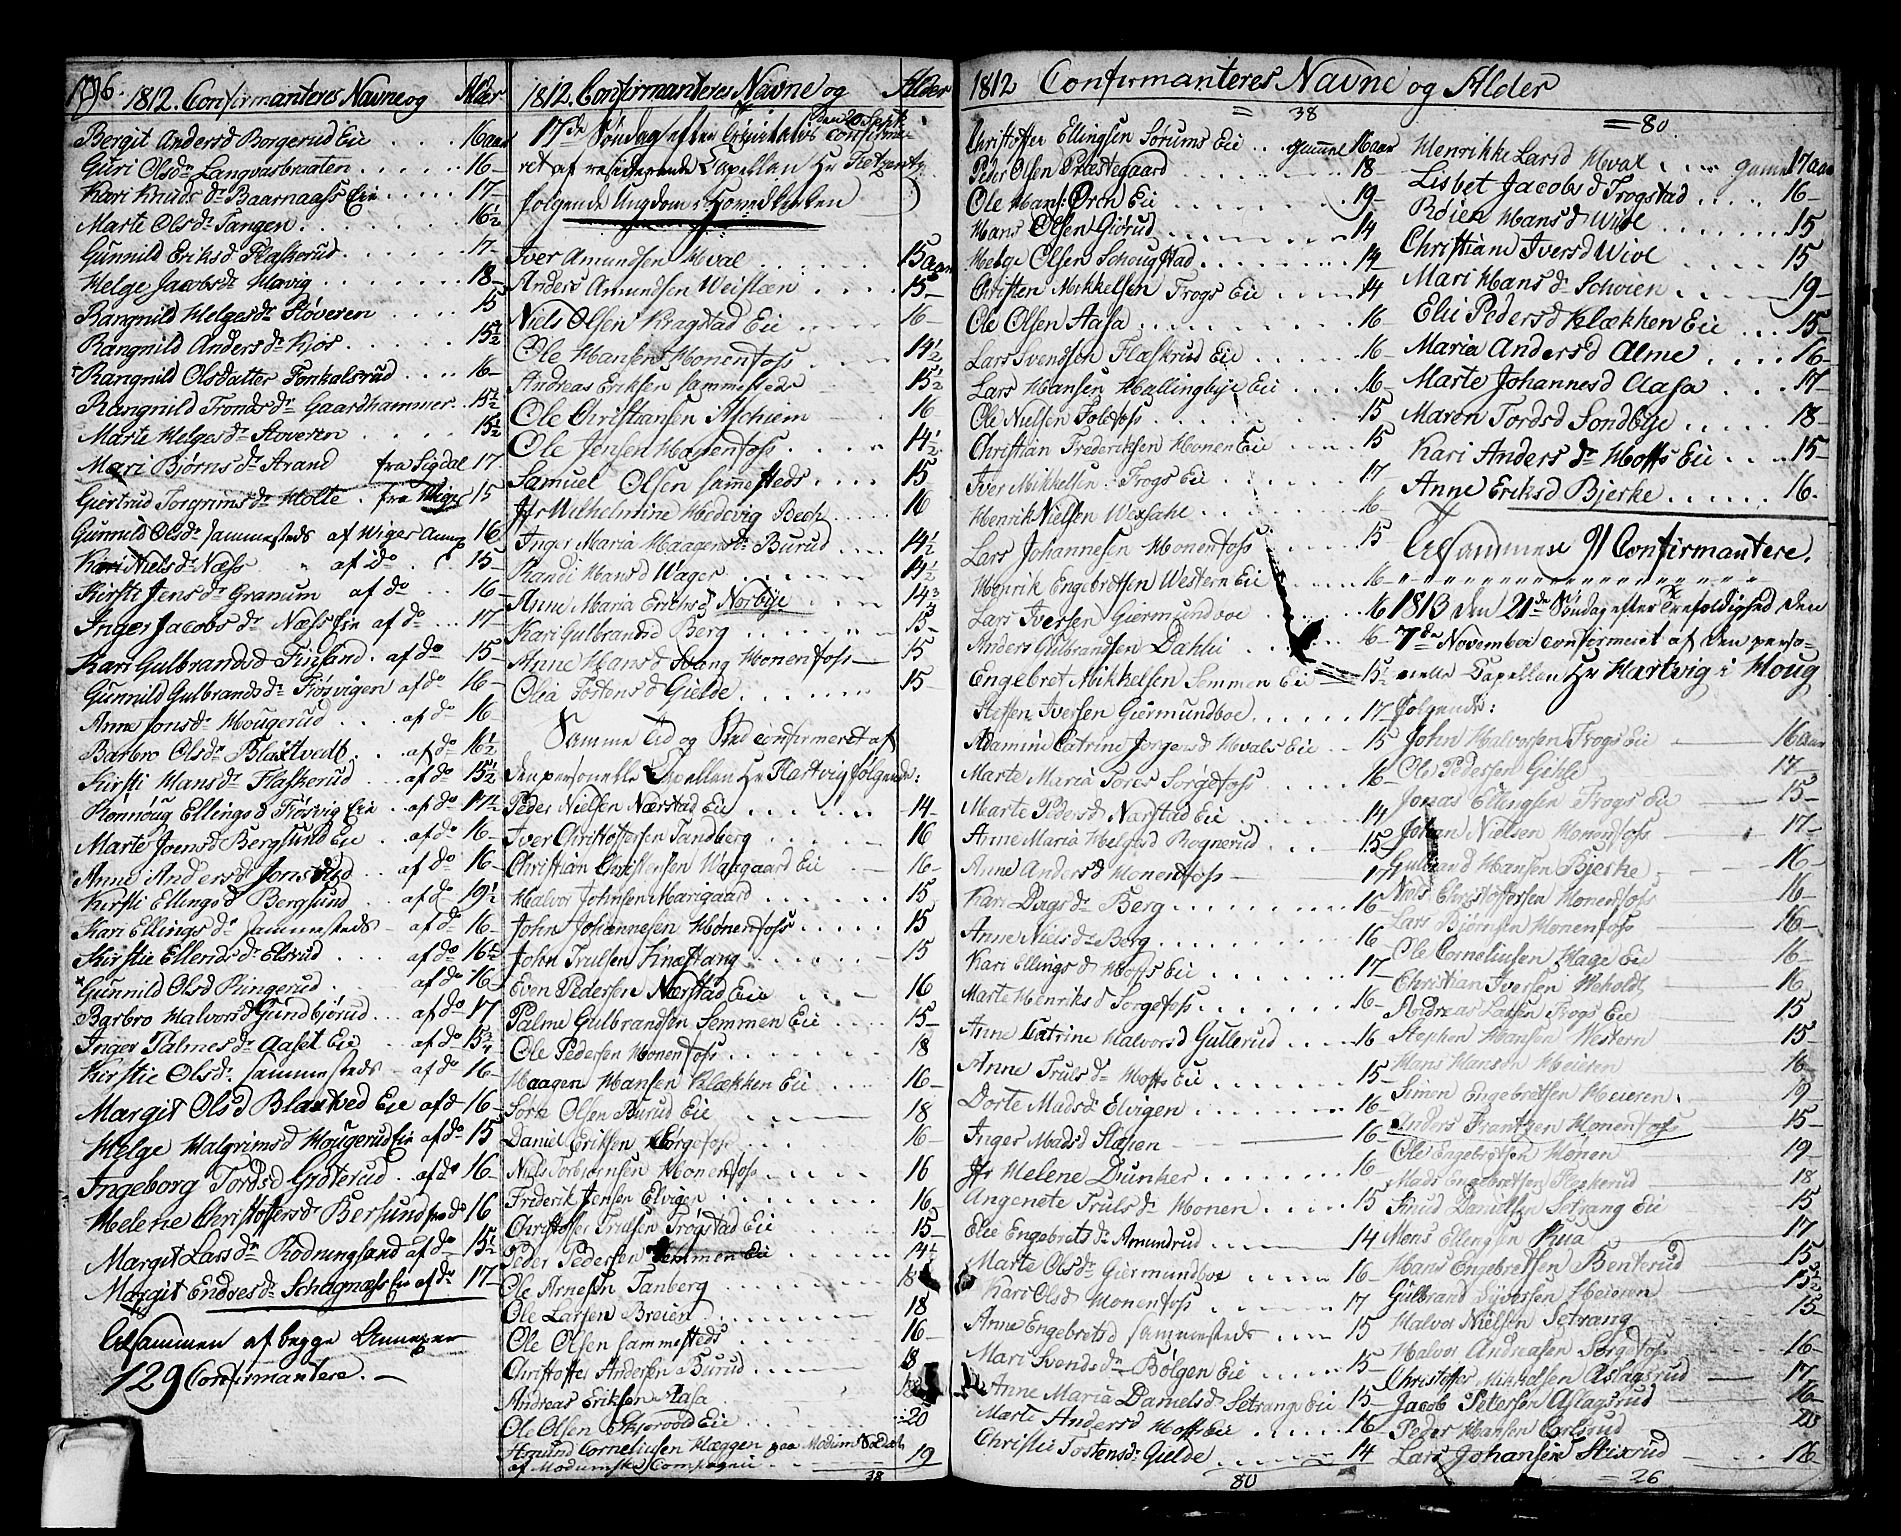 1812. Confirmanteres Navne og Alder
Bergit Andersd Borgerud Eie 16 aar
Guri Olsdr Langvasbraaten 16
Kari Knudsdr Baarnaass Eie 17
Marte Olsdr Tangen 16½
Gunnild Eriksd Flaskerud 17
Helge Jacobsdr Havig 18
Rangnild Helgesdr Støveren 15
Rangnild Andersdr Kjøs 15½
Rangnild Olsdatter Tonkalsrud 16
Rangnild Trondsdr Gaardhammer 15½
Marte Helgesdr Støveren 15½
Mari Bjørnsdr Strand fra Sigdal 17
Giertrud Torgrimsdr Holte fra Wiger 15
Gunnild Olsdr sammesteds af Wiger Annex 16
Kari Nielsdr Næss af do 15
Kirsti Jensdr Granum af do 16
Inger Jacobsdr Næss Eie af do 17
Kari Gulbrandsd Finsand af do 15
Gunnild Gulbrandsdr Frøsvigen af do 16
Anne Jonsdr Hougerud af do 16
Barbro Olsdr Blaxtvedt af do 16½
Kirsti Hansdr Flaskerud af do 15½
Rønnoug Ellingsd Frøsvig Eie af do 17½
Marte Joensd Bergsund Eie af do 16
Anne Andersdr Jonsrud af do 16
Kirsti Ellingsd Bergsund af do 19½
Kari Ellingsdr sammesteds af do 16
Kirstie Ellendsdr Elsrud af do 16½
Gunnild Olsd Ringerud af do 16
Barbro Halvorsd Gundbjørud af do 17
Inger Palmesdr Aaset Eie af do 15¾
Kirstie Olsdr sammesteds af do 16
Margit Olsd Blaxtved Eie af do 16
Helge Halgrimsd Hougerud Eie af do 15
Ingeborg Tordsd Grøterud af do 16
Helene Christoffersdr Bersund fra do 16
Margit Larsdr Rodningsand af do 15½
Margit Endresdr Schagnæss Eie af do 17
Tilsammen af begge Annexer
129 Confirmantere.
1812. Confirmanteres Navne og Alder
17de Søndag efter Trinitatis den 20 Septbr confirme-
ret af residerende Capellan Hr Tietzentz
følgende Ungdom i Hovedkirken
Iver Amundsen Hval 15 aar
Anders Amundsen Weisteen 15
Niels Olsen Kragstad Eie 16
Ole Hansen Honenfoss 14½
Andreas Eriksen sammesteds 15½
Ole Christiansen Aschiem 16
Ole Jensen Hønenfoss 14½
Samuel Olsen sammesteds 15
Jfr Wilhelmine Hedevig Bech 16
Inger Maria Haagensdr Burud 14½
Randi Hansd Wager 14½
Anne Maria Eriksd Norbye 14¾
Kari Gulbrandsd Berg 15
Anne Hansd Stang Honenfoss 15
Olea Tostensd Gielde 15
Samme Tid og Sted confirmeret af
den personelle Capellan Hr Hartvig følgende:
Peder Nielsen Nærstad Eie 14
Iver Christoffersen Tandberg 16
Christian Christensen Waagaard Eie 16
Halvor Johnsen Marigaard 15
John Johannesen Hønenfoss 15
John Trulsen Finastang 15
Even Pedersen Nærstad Eie 16
Palme Gulbrandsen Semmen Eie 15
Ole Pedersen Honenfoss 18
Haagen Hansen Klækken Eie 16
Sørk Olsen Burud Eie 18
Daniel Eriksen Sørgefoss 16
Niels Torbiørnsen Honenfoss 16
Frederik Jensen Elvigen 16
Christoffer Trulsen Trøgstad Eie 15
Peder Pedersen Semmen Eie 14½
Ole Arnesen Tanberg 18
Ole Larsen Breien 18
Ole Olsen sammesteds 16
Christoffer Andersen Burud 18
Andreas Eriksen Aasa 18
Ole Olsen Eie 20
Amund Corneliusen Hæggen paa Modum Soldat
af Modumske Compagnie 19
38
1812 Confirmanteres Navne og Alder
= 38
Christoffer Ellingsen Sorums Eie gammel 16 aar
Peder Olsen Præstegaard 18
Ole Hans: Øren Eie 19
Hans Olsen Giørud 14
Helge Olsen Schougstad 14
Christen Mikkelsen Frogs Eie 14
Ole Olsen Aasa 16
Lars Svendsen Flaskrud Eie 16
Lars Hansen Hallingbye Eie 16
Ole Nielsen Foldfoss 15
Christian Frederiksen Honen Eie 15
Iver Mikkelsen Frogs Eie 17
Henrik Nielsen Wexahl 16
Lars Johannesen Honenfoss 15
Henrik Engebretsen Western Eie 16
Lars Iversen Giermundboe 16
Anders Gulbrandsen Dahli 16
Engebret Mikkelsen Semmen Eie 15½
Steffen Iversen Giermundboe 17
Adamine Catrine Jorgensd Hvals Eie 15
Marte Maria Toresd Sorgefoss 16
Marte Pedersd Narstad Eie 14
Anne Maria Helgesd Rognerud 15
Anne Andersd Honenfoss 17
Kari Dagsdr Berg 16
Anne Nielsdr Berg 16
Kari Ellingsd Hoffs Eie 17
Marte Henriksd Sorgefoss 16
Anne Catrine Halvorsd Gullerud 16
Anne Trulsdr Hoffs Eie 15
Dorte Madsdr Elvigen 16
Inger Madsd Slaten 16
Jfr Helene Dunker 16
Angenete Trulsdr Honen 15
Elie Engebretsdr Amundrud 14
Marte Olsdr Giermundboe 16
Kari Olsd Honenfoss 17
Anne Engebretsd sammesteds 15
Mari Svendsdr Bølgen Eie 15
Anne Maria Danielsd Setrangs Eie 15
Marte Andersd Hoffs Eie 16
Christie Tostensdr Gielde 14
80
= 80
Henrikke Larsd Hval gammel 17 aar
Lisbet Jacobsd Frogstad 16
Røien Hansdr Wibe 15
Christiane Iversd Wive 15
Mari Hansdr Schvien 19
Elie Pedersd Klækken Eie 15
Maria Andersd Alme 16
Marte Johannesd Aasa 17
Maren Tordsd Sondbye 18
Kari Andersdr Hoffs Eie 15
Anne Eriksd Bjerke 16
Tilsammen 91 Confirmantere.
1813 den 21de Søndag efter Trefoldighed den
7de November confirmeret af den perso-
nelle Capellan Hr Hartvig i Houg
følgende:
John Halvorsen Frogs Eie 16 aar
Ole Pedersen Gihle 17
Jonas Ellingsen Frogs Eie 15
Johan Nielsen Honenfoss 17
Gulbrand Hansen Bjerke 16
Niels Christoffersen Honenfoss 16
Lars Bjørnsen Honenfoss 16
Ole Corneliusen Hage Eie 16
Christian Iversen Meholdt 16
Andreas Larsen Frogs Eie 15
Stephen Hansen Western 15
Hans Hansen Heieren 16
Simen Engebretsen Heieren 19
Anders Frantzen Honenfoss 15
Ole Engebretsen Hønen 19
Mads Engebretsen Fleskerud 18
Knud Danielsen Setrang Eie 15
Mons Ellingsen Rua 17
Hans Engebretsen Benterud 15
Gulbrand Syversen Heieren 15½
Halvor Nielsen Setrang 15
Halvor Andreasen Sorgefoss 16
Christoffer Mikkelsen Aslagsrud 17
Jacob Petersen Aslagsrud 16
Peder Hansen Carlsrud 20
Lars Johansen Stixrud 16
= 26